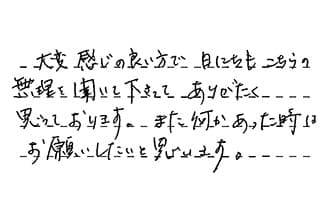 大変感じの良い方で、日にちもこちらの
無理を聞いて下さって ありがたく
思っております。また何かあった時は
お願いしたいと思います。